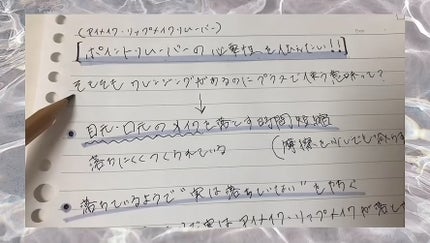 (アイメイク・リップメイクリムーバー)
[ポイントリムーバーの必要性を伝えたい!!]
そもそもクレンジングがあるのにプラスで使う意味って?
↓
・目元・口元のメイクを落とす時間短縮
落ちにくくつくられている
・落ちているようで"実は落ちていない"を防ぐ
実はアイメイク・リップメイクが落